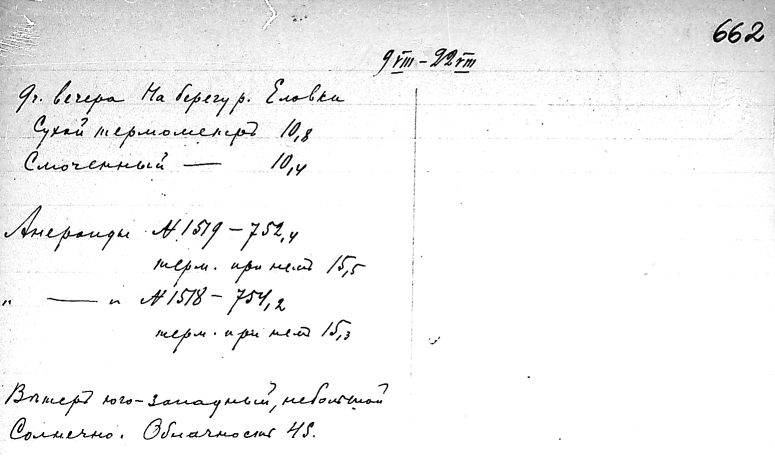 662
9 VIII – 22 VIII
9ч. вечера На берегу р. Еловки
Сухой термометръ 10,8
Смоченный — 10,4
Анероиды № 1519 – 752,4
терм. при немъ 15,5
" — " № 1518 – 754,2
терм. при немъ 15,3
Вѣтеръ юго-западный, небольшой
Солнечно. Облачность 4S.